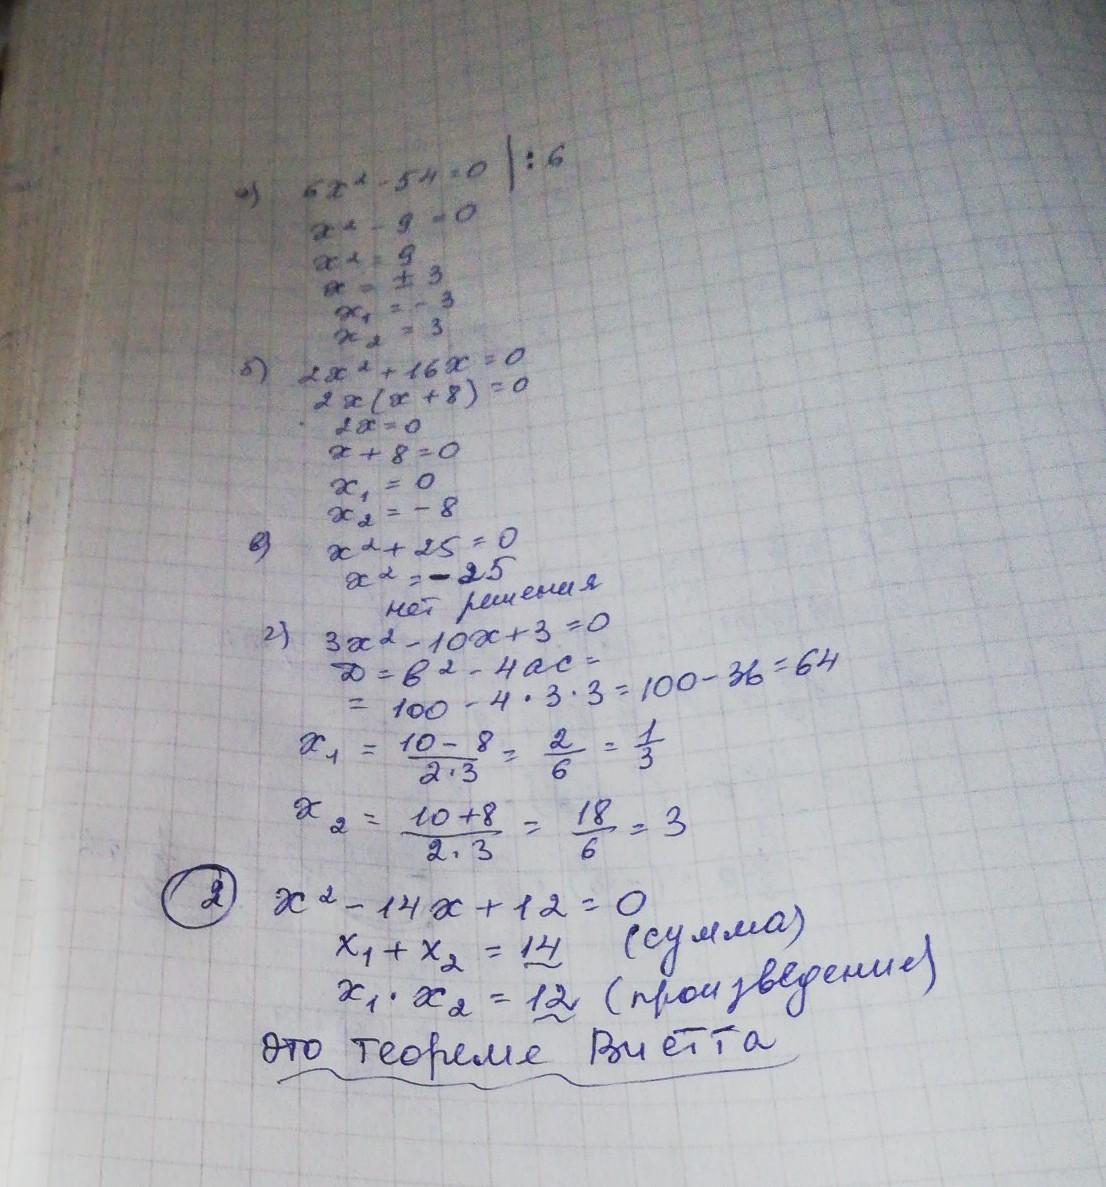 а) 6x² - 54 = 0 | : 6
x² - 9 = 0
x² = 9
x = ± 3
x₁ = - 3
x₂ = 3
б) 2x² + 16x = 0
2x(x + 8) = 0
2x = 0
x + 8 = 0
x₁ = 0
x₂ = - 8
в) x² + 25 = 0
x² = - 25
нет решения
г) 3x² - 10x + 3 = 0
D = b² - 4ac =
= 100 - 4 · 3 · 3 = 100 - 36 = 64
x₁ = (10 - 8)/(2·3) = 2/6 = 1/3
x₂ = (10 + 8)/(2·3) = 18/6 = 3
2 x² - 14x + 12 = 0
x₁ + x₂ = 14 (сумма)
x₁ · x₂ = 12 (произведение)
это теореме Виетта